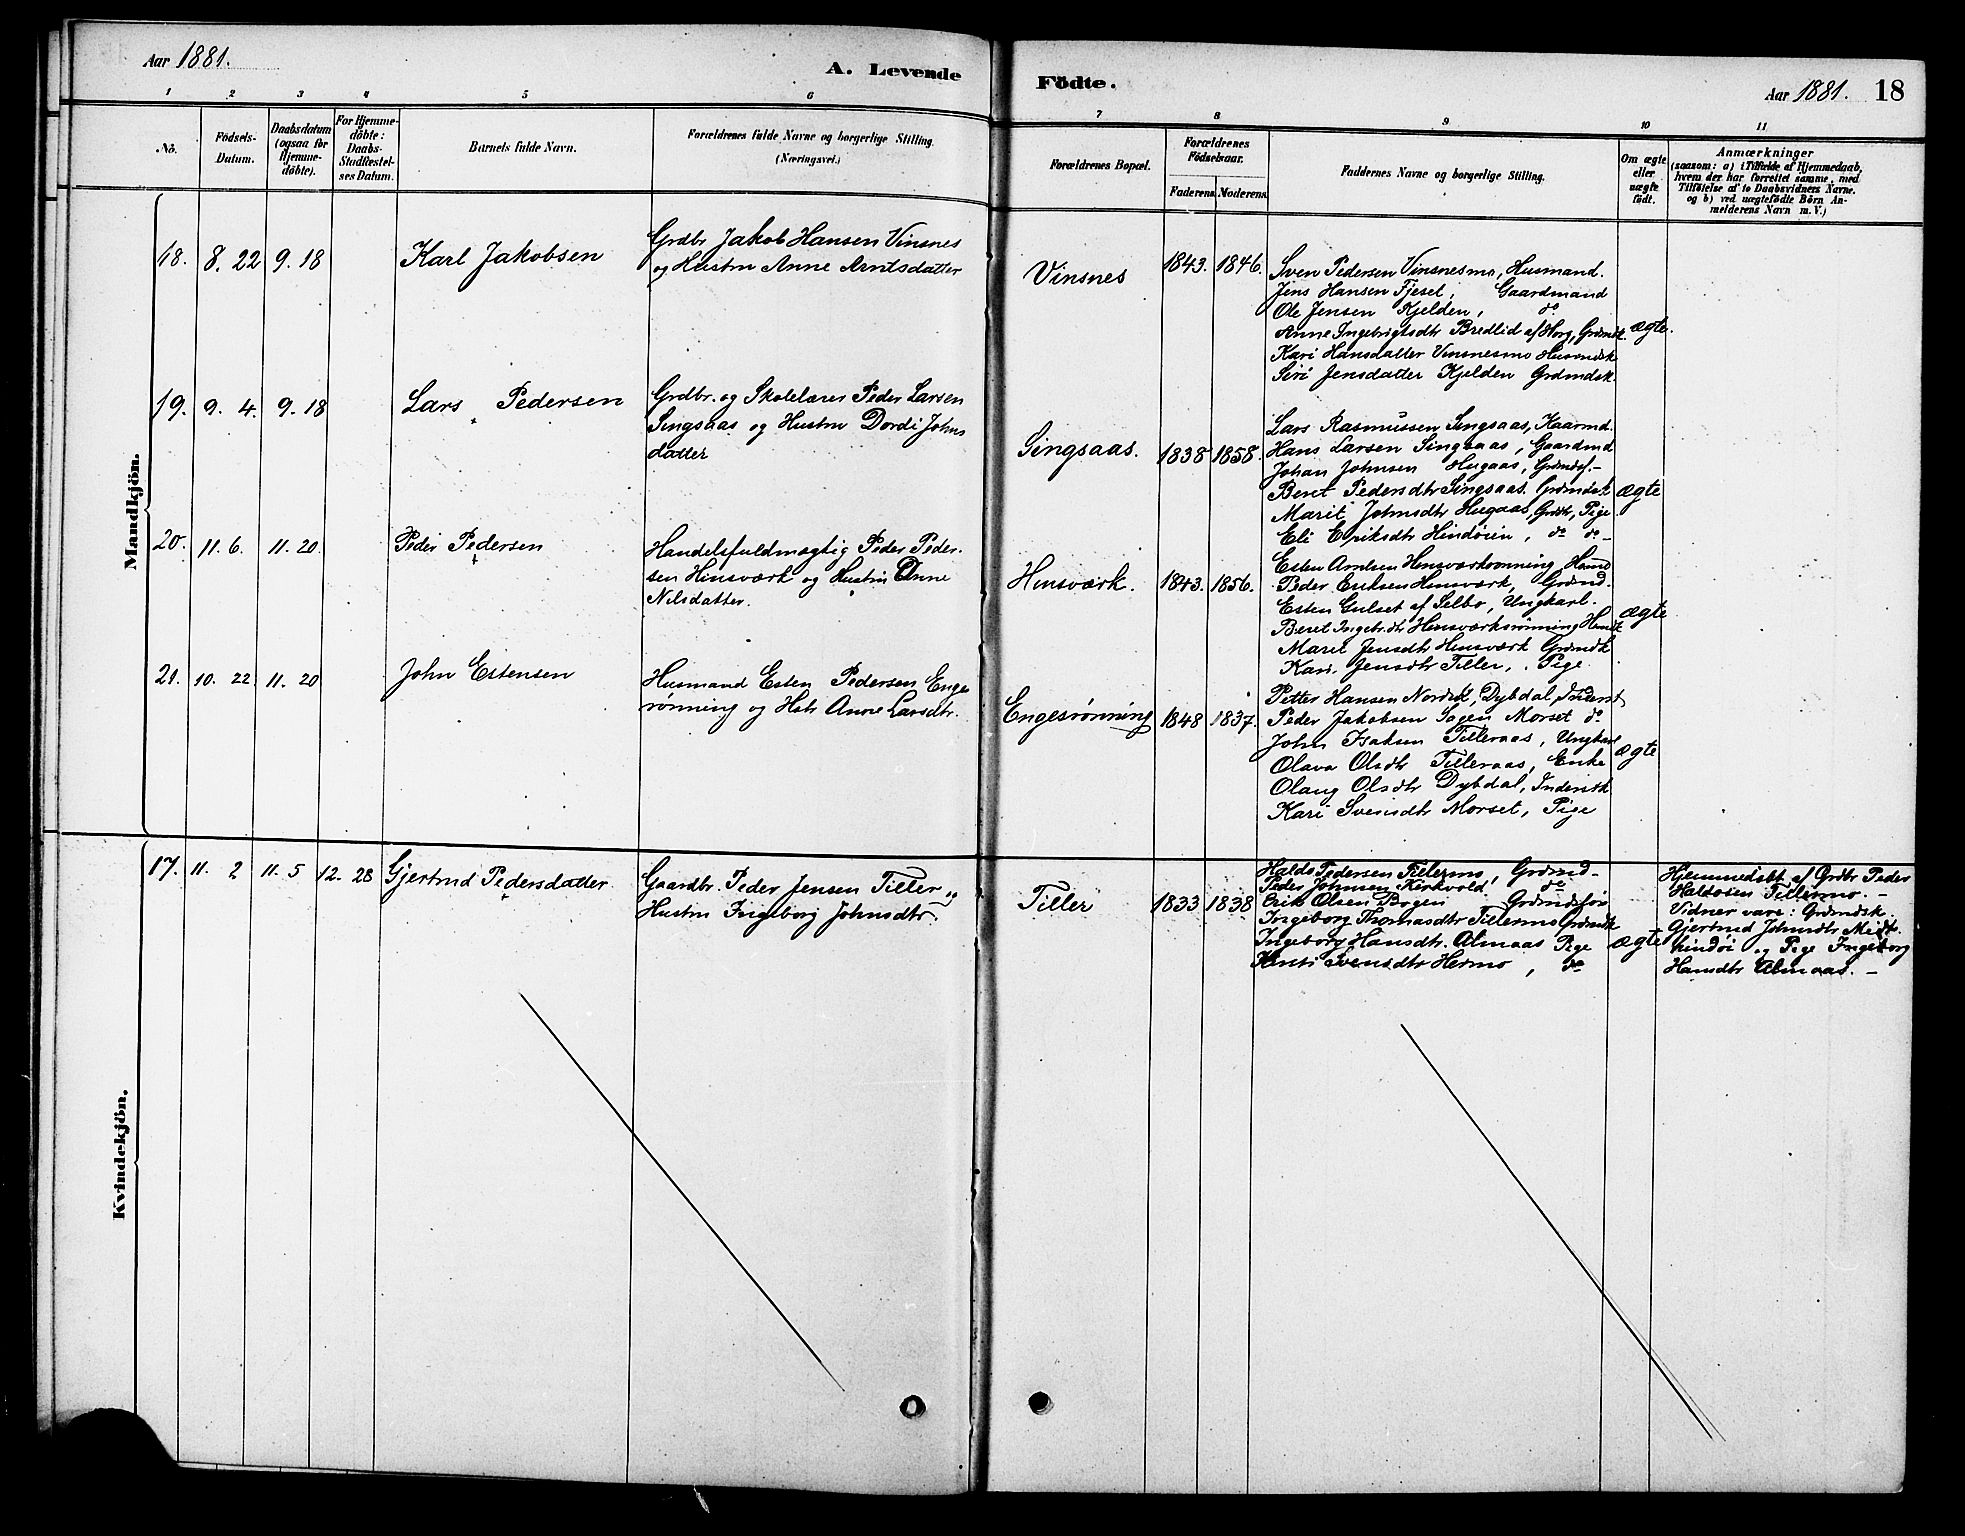 Aar 1881.
A. Levende
Födte.
Aar 1881.
18
1 2 3 4 5 6
7 8 9 10 11
No.
Födsels-
Datum.
Daabsdatum
(ogsaa for
Hjemme-
döbte).
For Hjemme-
döbte:
Daabs-
Stadfæstel-
ses Datum.
Barnets fulde Navn.
Forældrenes fulde Navne og borgerlige Stilling.
(Næringsvei.)
Forældrenes Bopæl.
Forældrenes
Födselsaar.
Faderens. Moderens.
Faddernes Navne og borgerlige Stilling.
Om ægte
eller
uægte
födt.
Anmærkninger
(saasom: a) i Tilfælde af Hjemmedaab,
hvem der har forrettet samme, med
Tilföielse af to Daabsvidners Navne.
og b) ved uægtefödte Börn An-
melderens Navn m. V.)
Mandkjön.
18. 8. 22 9. 18
Karl Jakobsen
Grdbr Jakob Hansen Vinsnes
og Hustru Anne Arntsdatter
Vinsnes
1843. 1846.
Sven Pedersen Vinsnesmo, Husmand.
Jens Hansen Fjeset, Gaardmand
Ole Jensen Kjelden, do
Anne Ingebrigtsdtr Bredlid af Horg, Grdmdsk.
Kari Hansdatter Vinsnesmo Husmdsk
Siri Jensdatter Kjelden Grdmdsk.
ægte.
19. 9. 4. 9. 18
Lars Pedersen
Grdbr. og Skolelærer Peder Larsen
Singsaas og Hustru Dordi Johns
datter
Singsaas.
1838 1858.
Lars Rasmussen Singsaas, Kaarmd.
Hans Larsen Singsaas, Gaardmd
Johan Johnsen Hugaas, Grdmdsf.-
Beret Pedersdtr Singsaas. Grdmdsk
Marit Johnsdtr Hugaas, Grdtr, Pige
Eli Eriksdtr Hindöien, do do-
ægte
20. 11. 6. 11. 20.
Peder Pedersen
Handelsfuldmægtig Peder Peder-
sen Hinsværk og Hustru Anne
Nilsdatter.
Hinsværk.
1843. 1856.
Esten Arntsen Hinsværkrönning Hsmd
Peder Eriksen Hinsværk, Grdmd.
Esten Gulset af Selbo, Ungkarl.
Beret Ingebr.dtr Hinsværksrönning Hsmdsk
Marit Jensdtr Hinsværk Grdmdk
Kari Jensdtr Tiller, Pige
ægte
21. 10. 22 11. 20
John Estensen
Husmand Esten Pedersen Enge
rönning og Hstr Anne Larsdtr.
Engesrönning
1848 1837.
Petter Hansen Dybdal, Inderst
Peder Jakobsen Morset do
John Isaksen Tilleraas, Ungkarl
Olava Olsdtr Tilleraas, Enke
Olaug Olsdtr Dybdal, Inderstk
Kari Svensdtr Morset, Pige
ægte
Kvindekjön.
17. 11. 2 11. 5 12. 28
Gjertrud Pedersdatter
Gaardbr. Peder Jensen Tiller og
Hustru Ingeborg Johnsdtr.
Tiller
1833 1838
Haldo Pedersen Tillermo, Grdmd-
Peder Johnsen Kirkvold, do
Erik Olsen Bogen Grdmdsfön
Ingeborg Thomasdtr Tillermo Grdmdk
Ingeborg Hansdtr. Almaas Pige
Kirsti Svensdtr Hermo, do
ægte
Hjemmedöbt af Grdbr Peder
Haldosen Tillermo. -
Vidner vare: Grdmdsk.
Gjertrud Johnsdtr Midt-
hindöi og Pige Ingeborg
Hansdtr Almaas. -